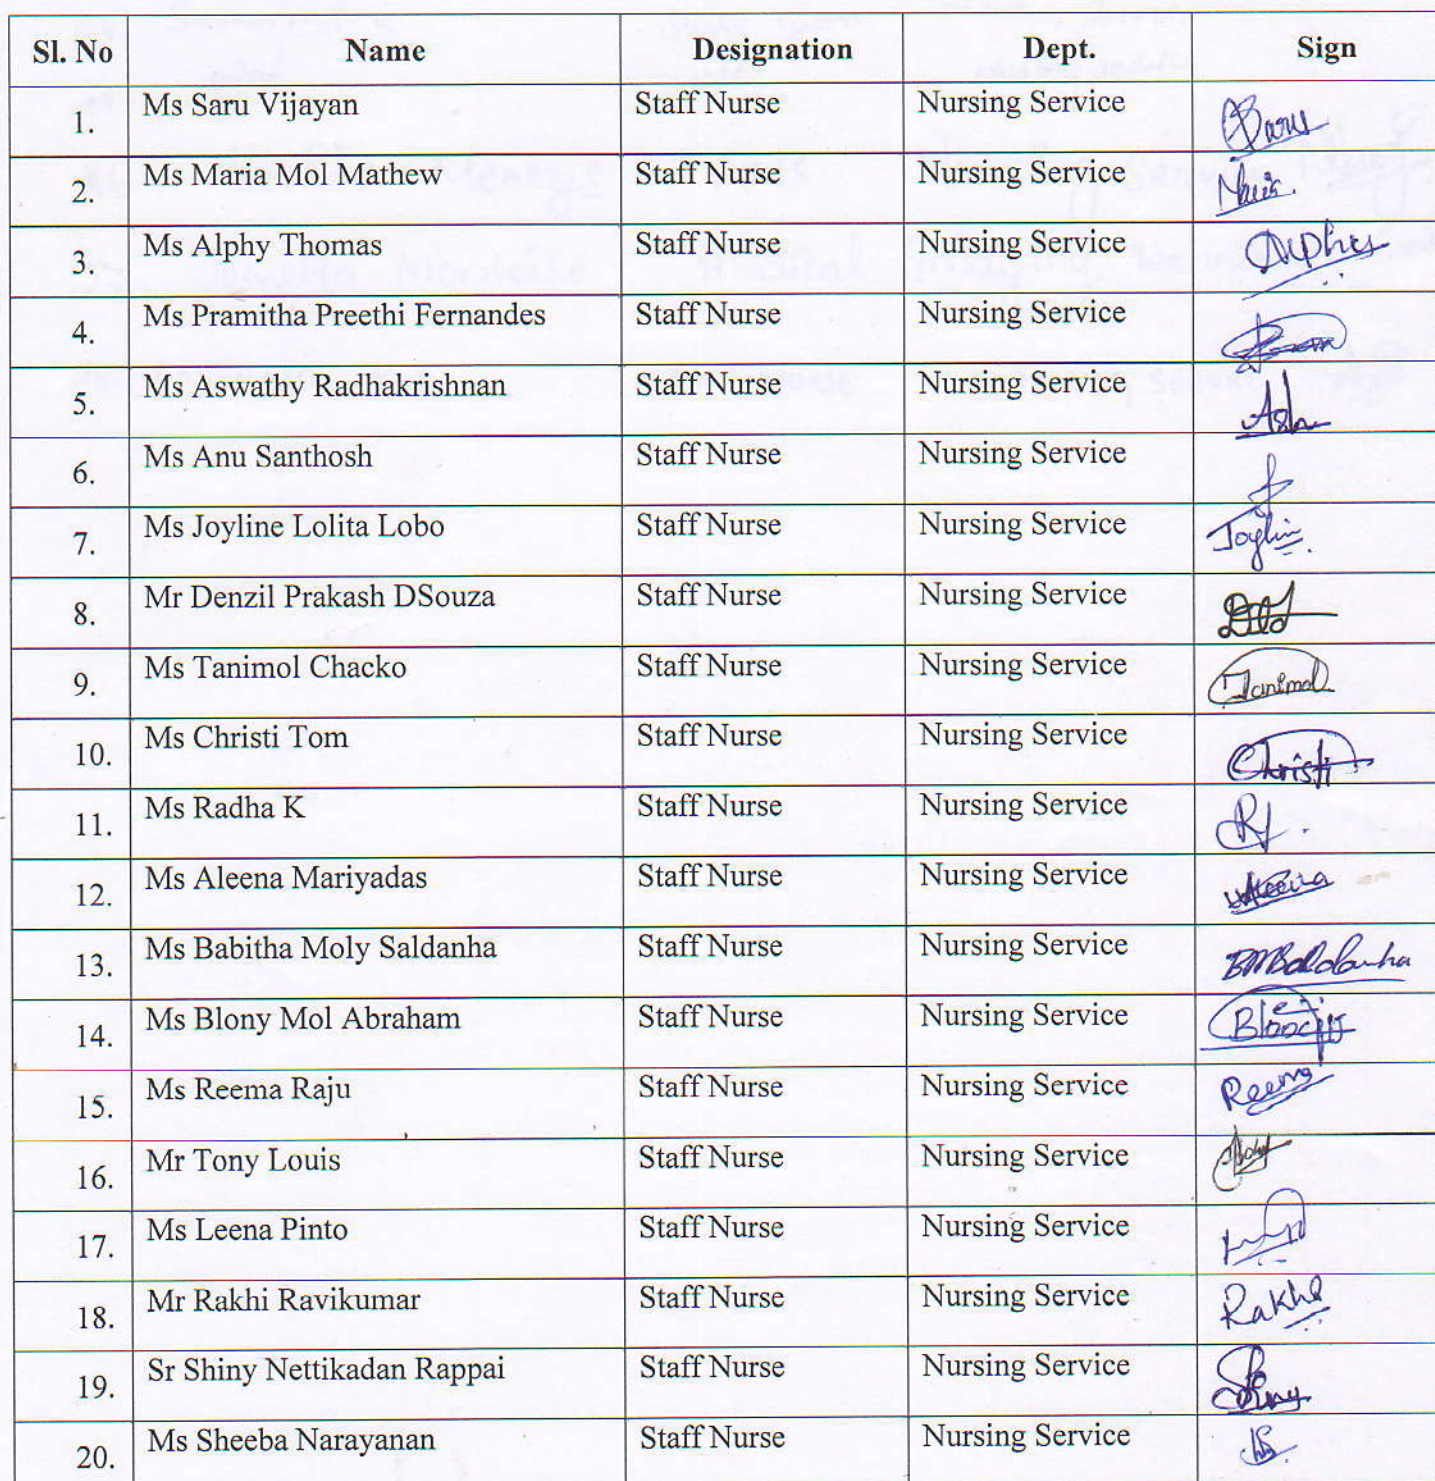 Sl. No Name Designation Dept. Sign
1. Ms Saru Vijayan Staff Nurse Nursing Service Saru
2. Ms Maria Mol Mathew Staff Nurse Nursing Service
3. Ms Alphy Thomas Staff Nurse Nursing Service
4. Ms Pramitha Preethi Fernandes Staff Nurse Nursing Service
5. Ms Aswathy Radhakrishnan Staff Nurse Nursing Service
6. Ms Anu Santhosh Staff Nurse Nursing Service
7. Ms Joyline Lolita Lobo Staff Nurse Nursing Service
8. Mr Denzil Prakash DSouza Staff Nurse Nursing Service
9. Ms Tanimol Chacko Staff Nurse Nursing Service Tanimol
10. Ms Christi Tom Staff Nurse Nursing Service Christi
11. Ms Radha K Staff Nurse Nursing Service
12. Ms Aleena Mariyadas Staff Nurse Nursing Service Aleena
13. Ms Babitha Moly Saldanha Staff Nurse Nursing Service
14. Ms Blony Mol Abraham Staff Nurse Nursing Service
15. Ms Reema Raju Staff Nurse Nursing Service Reema
16. Mr Tony Louis Staff Nurse Nursing Service
17. Ms Leena Pinto Staff Nurse Nursing Service
18. Mr Rakhi Ravikumar Staff Nurse Nursing Service Rakhi
19. Sr Shiny Nettikadan Rappai Staff Nurse Nursing Service Shiny
20. Ms Sheeba Narayanan Staff Nurse Nursing Service